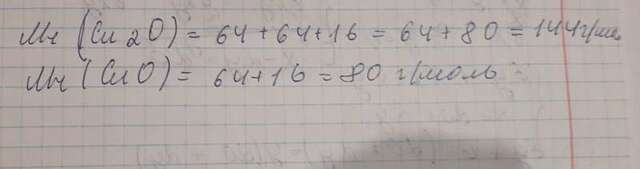 Mr (Cu2O) = 64+64+16 = 64+80 = 144 г/мо
Mr (CuO) = 64+16 = 80 г/моль